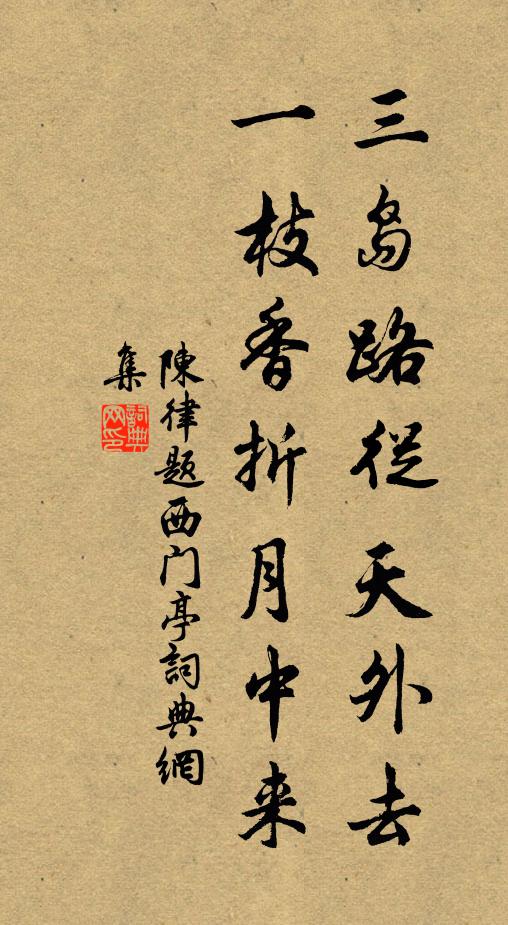 三岛路從天外去
一枝香折月中来
陳律题西门亭詞典網
集
詞典网印